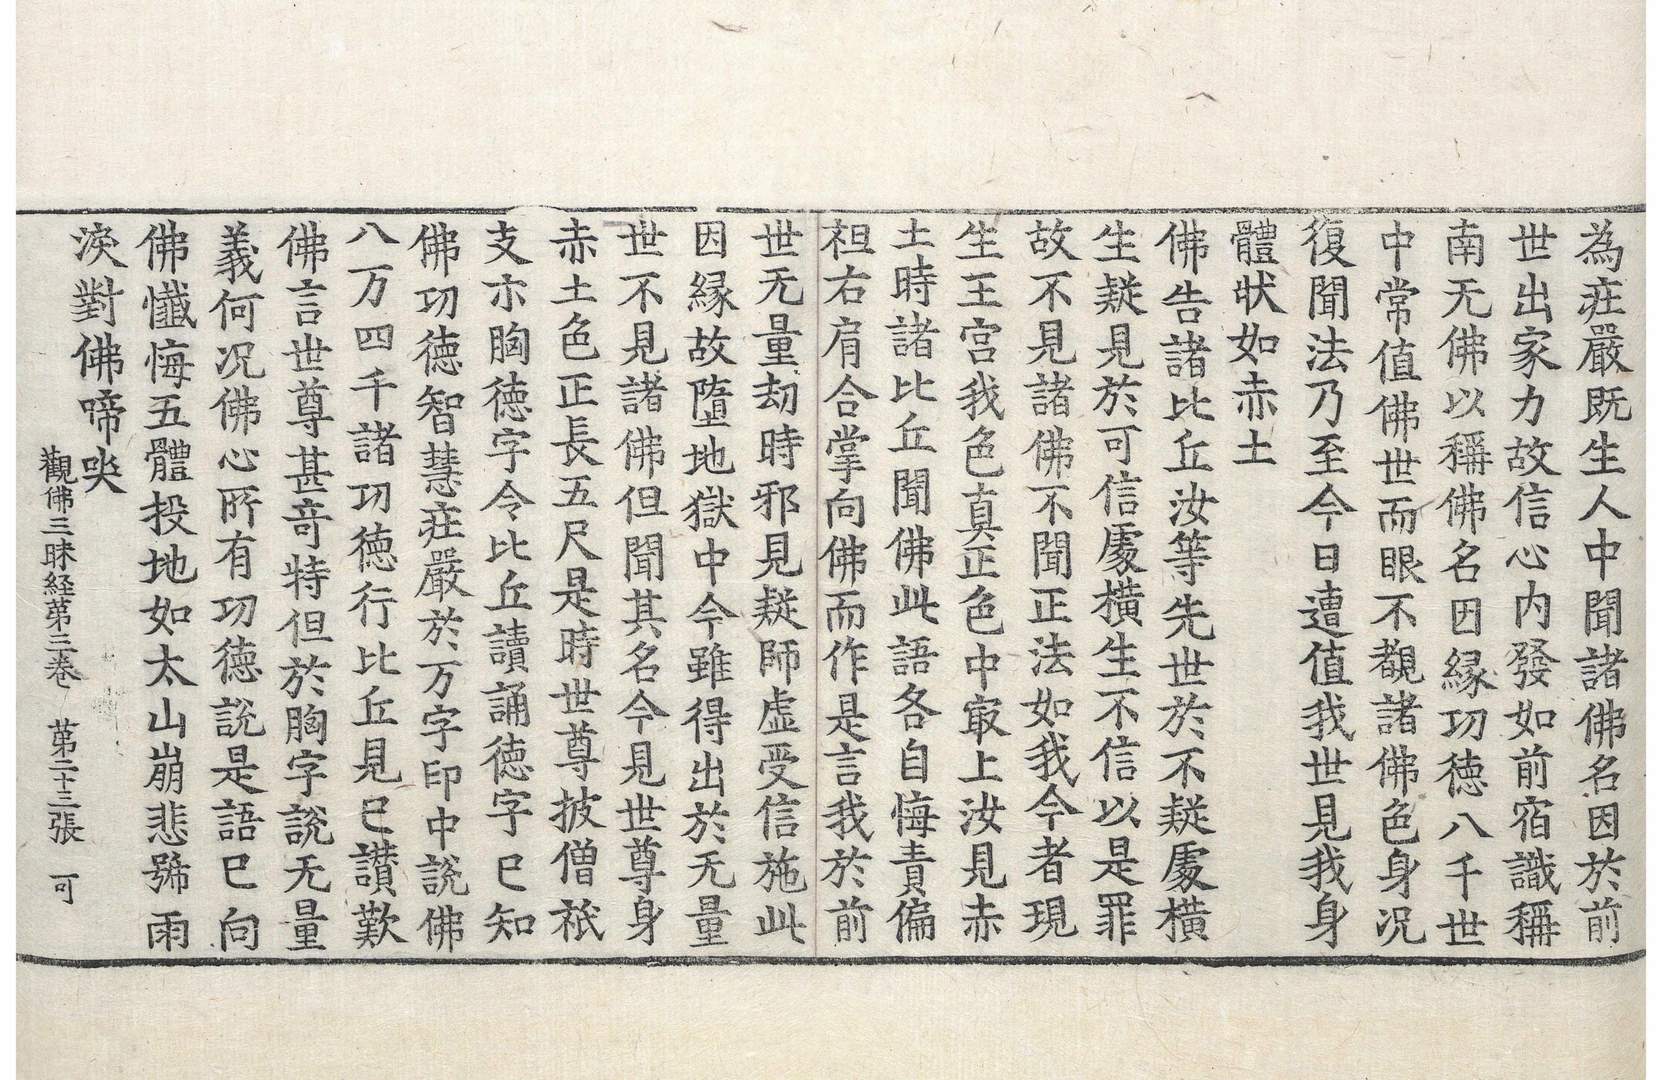 為㽵嚴既生人中聞諸佛名因於前
世出家力故信心内發如前宿識稱
南无佛以稱佛名因縁功徳八千世
中常值佛世而眼不覩諸佛色身况
復聞法乃至今日遭值我世見我身
體状如赤土
佛告諸比丘汝等先世於不疑處横
生疑見於可信處横生不信以是罪
故不見諸佛不聞正法如我今者現
生王宫我色真正色中㝡上汝見赤
土時諸比丘聞佛此語各自悔責偏
袒右肩合掌向佛而作是言我於前
世无量劫時邪見疑師虚受信施此
因縁故墮地獄中今雖得出於无量
世不見諸佛但聞其名今見世尊身
赤土色正長五尺是時世尊披僧祇
支示胸徳字令比丘讀誦徳字已知
佛功徳智慧㽵嚴於万字印中說佛
八万四千諸功徳行比丘見已讃歎
佛言世尊甚奇特但於胸字說无量
義何况佛心所有功徳說是語已向
佛懺悔五體投地如太山崩悲號雨
淚對佛啼哭
觀佛三昧経第三巻 第二十三張 可